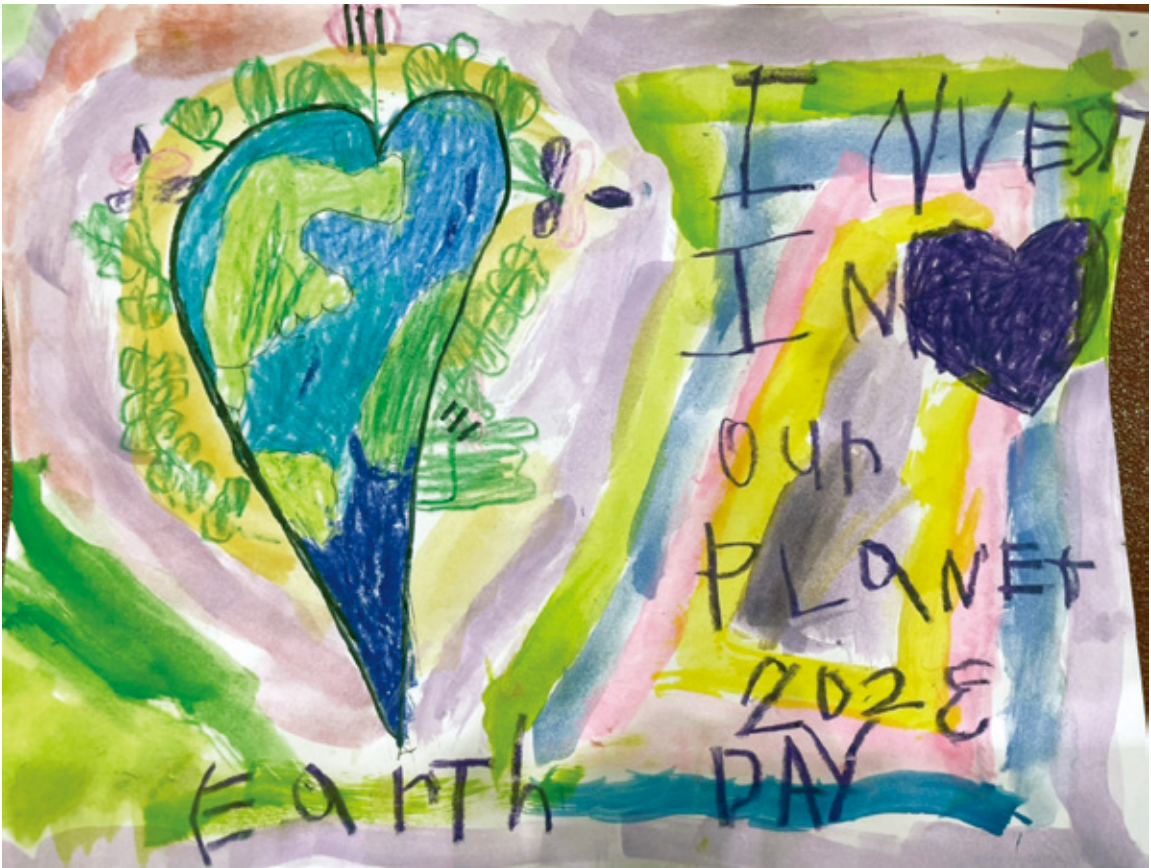 INVEST
IN
Our
PLaNEt
2023
Earth DAY